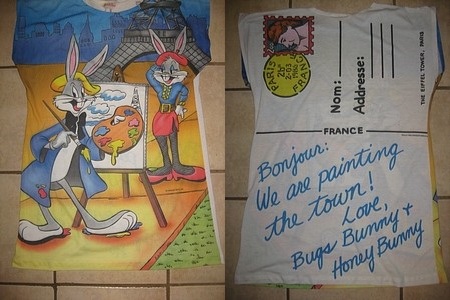 PARIS
2h
2-03
1988
FRANCE
Nom:
Addresse:
THE EIFFEL TOWER, PARIS
FRANCE
Bonjour:
We are painting
the town!
Love,
Bugs Bunny +
Honey Bunny